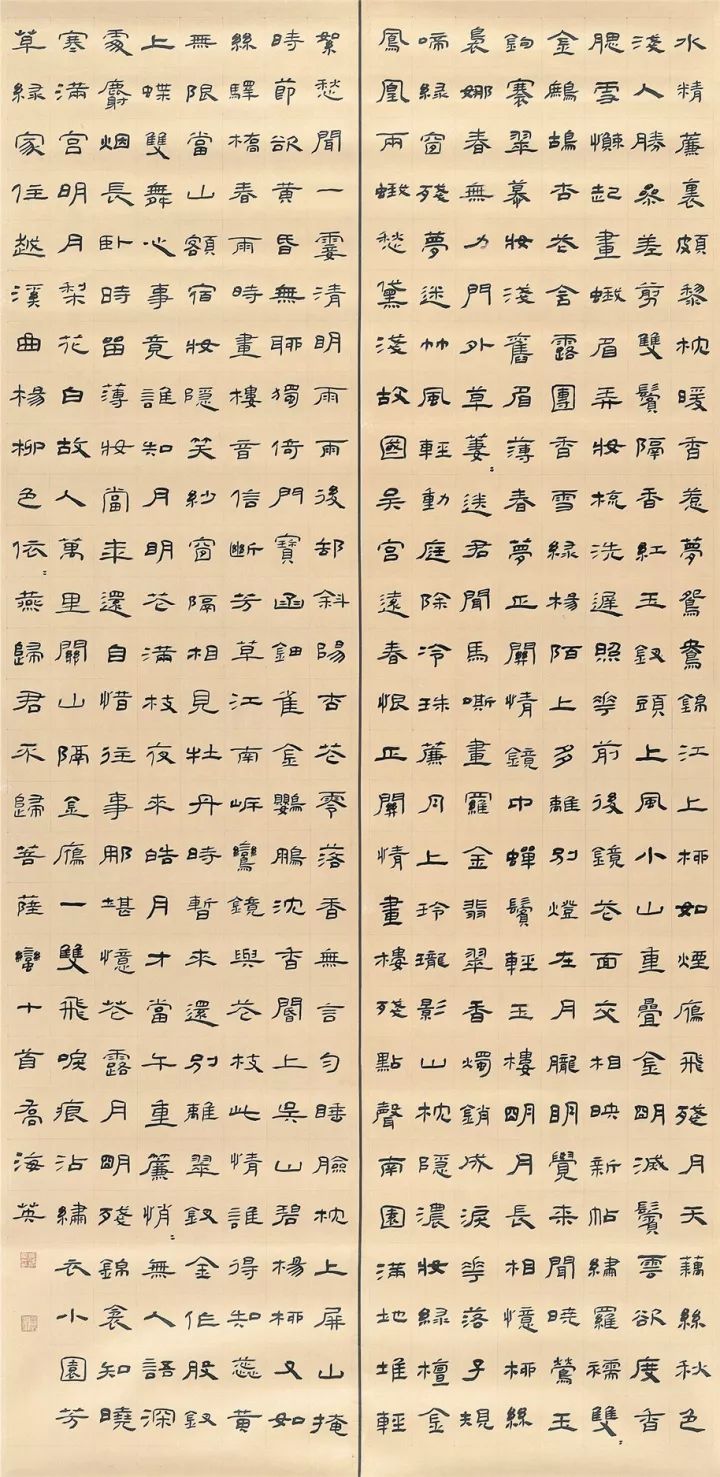 水精簾裏頗黎枕暖香惹夢鴛鴦錦江上柳如煙鴈飛殘月天藕絲秋色
淺人勝參差剪雙鬢隔香紅玉釵頭上風小山重疊金明滅鬢雲欲度香
腮雪懶起畫蛾眉弄妝梳洗遲照花前後鏡花面交相映新帖繡羅襦雙〻
金鷓鴣杏花含露團香雪綠楊陌上多離別燈在月朧明覺来聞曉鶯玉
鉤褰翠幕妝淺舊眉薄春夢正關情鏡中蟬鬢輕玉樓明月長相憶柳絲
裊娜春無力門外草萋〻送君聞馬嘶畫羅金翡翠香燭銷成淚花落子規
啼綠窗殘夢迷竹風輕動庭除冷珠簾月上玲瓏影山枕隱濃妝綠檀金
鳳凰兩蛾愁黛淺故國吳宮遠春恨正關情畫樓殘點聲南園滿地堆輕
絮愁聞一霎清明雨雨後却斜陽杏花零落香無言勻睡臉枕上屏山掩
時節欲黃昏無聊獨倚門寶函鈿雀金鸂鶒沈香閣上吳山碧楊柳又如
絲驛橋春雨時畫樓音信斷芳草江南岸鸞鏡與花枝此情誰得知蕊黃
無限當山額宿妝隱笑紗窗隔相見牡丹時暫來還別離翠釵金作股釵
上蝶雙舞心事竟誰知月明花滿枝夜來皓月才當午重簾悄〻無人語深
處麝烟長臥時留薄妝當年還自惜往事那堪憶花露月明殘錦衾知曉
寒滿宮明月梨花白故人萬里關山隔金鴈一雙飛淚痕沾繡衣小園芳
草綠家住越溪曲楊柳色依〻燕歸君不歸菩薩蠻十首喬海英